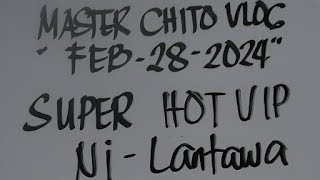 MASTER CHITO VLOG
" FEB-28-2024"
SUPER HOT VIP
Ni - Lantawa